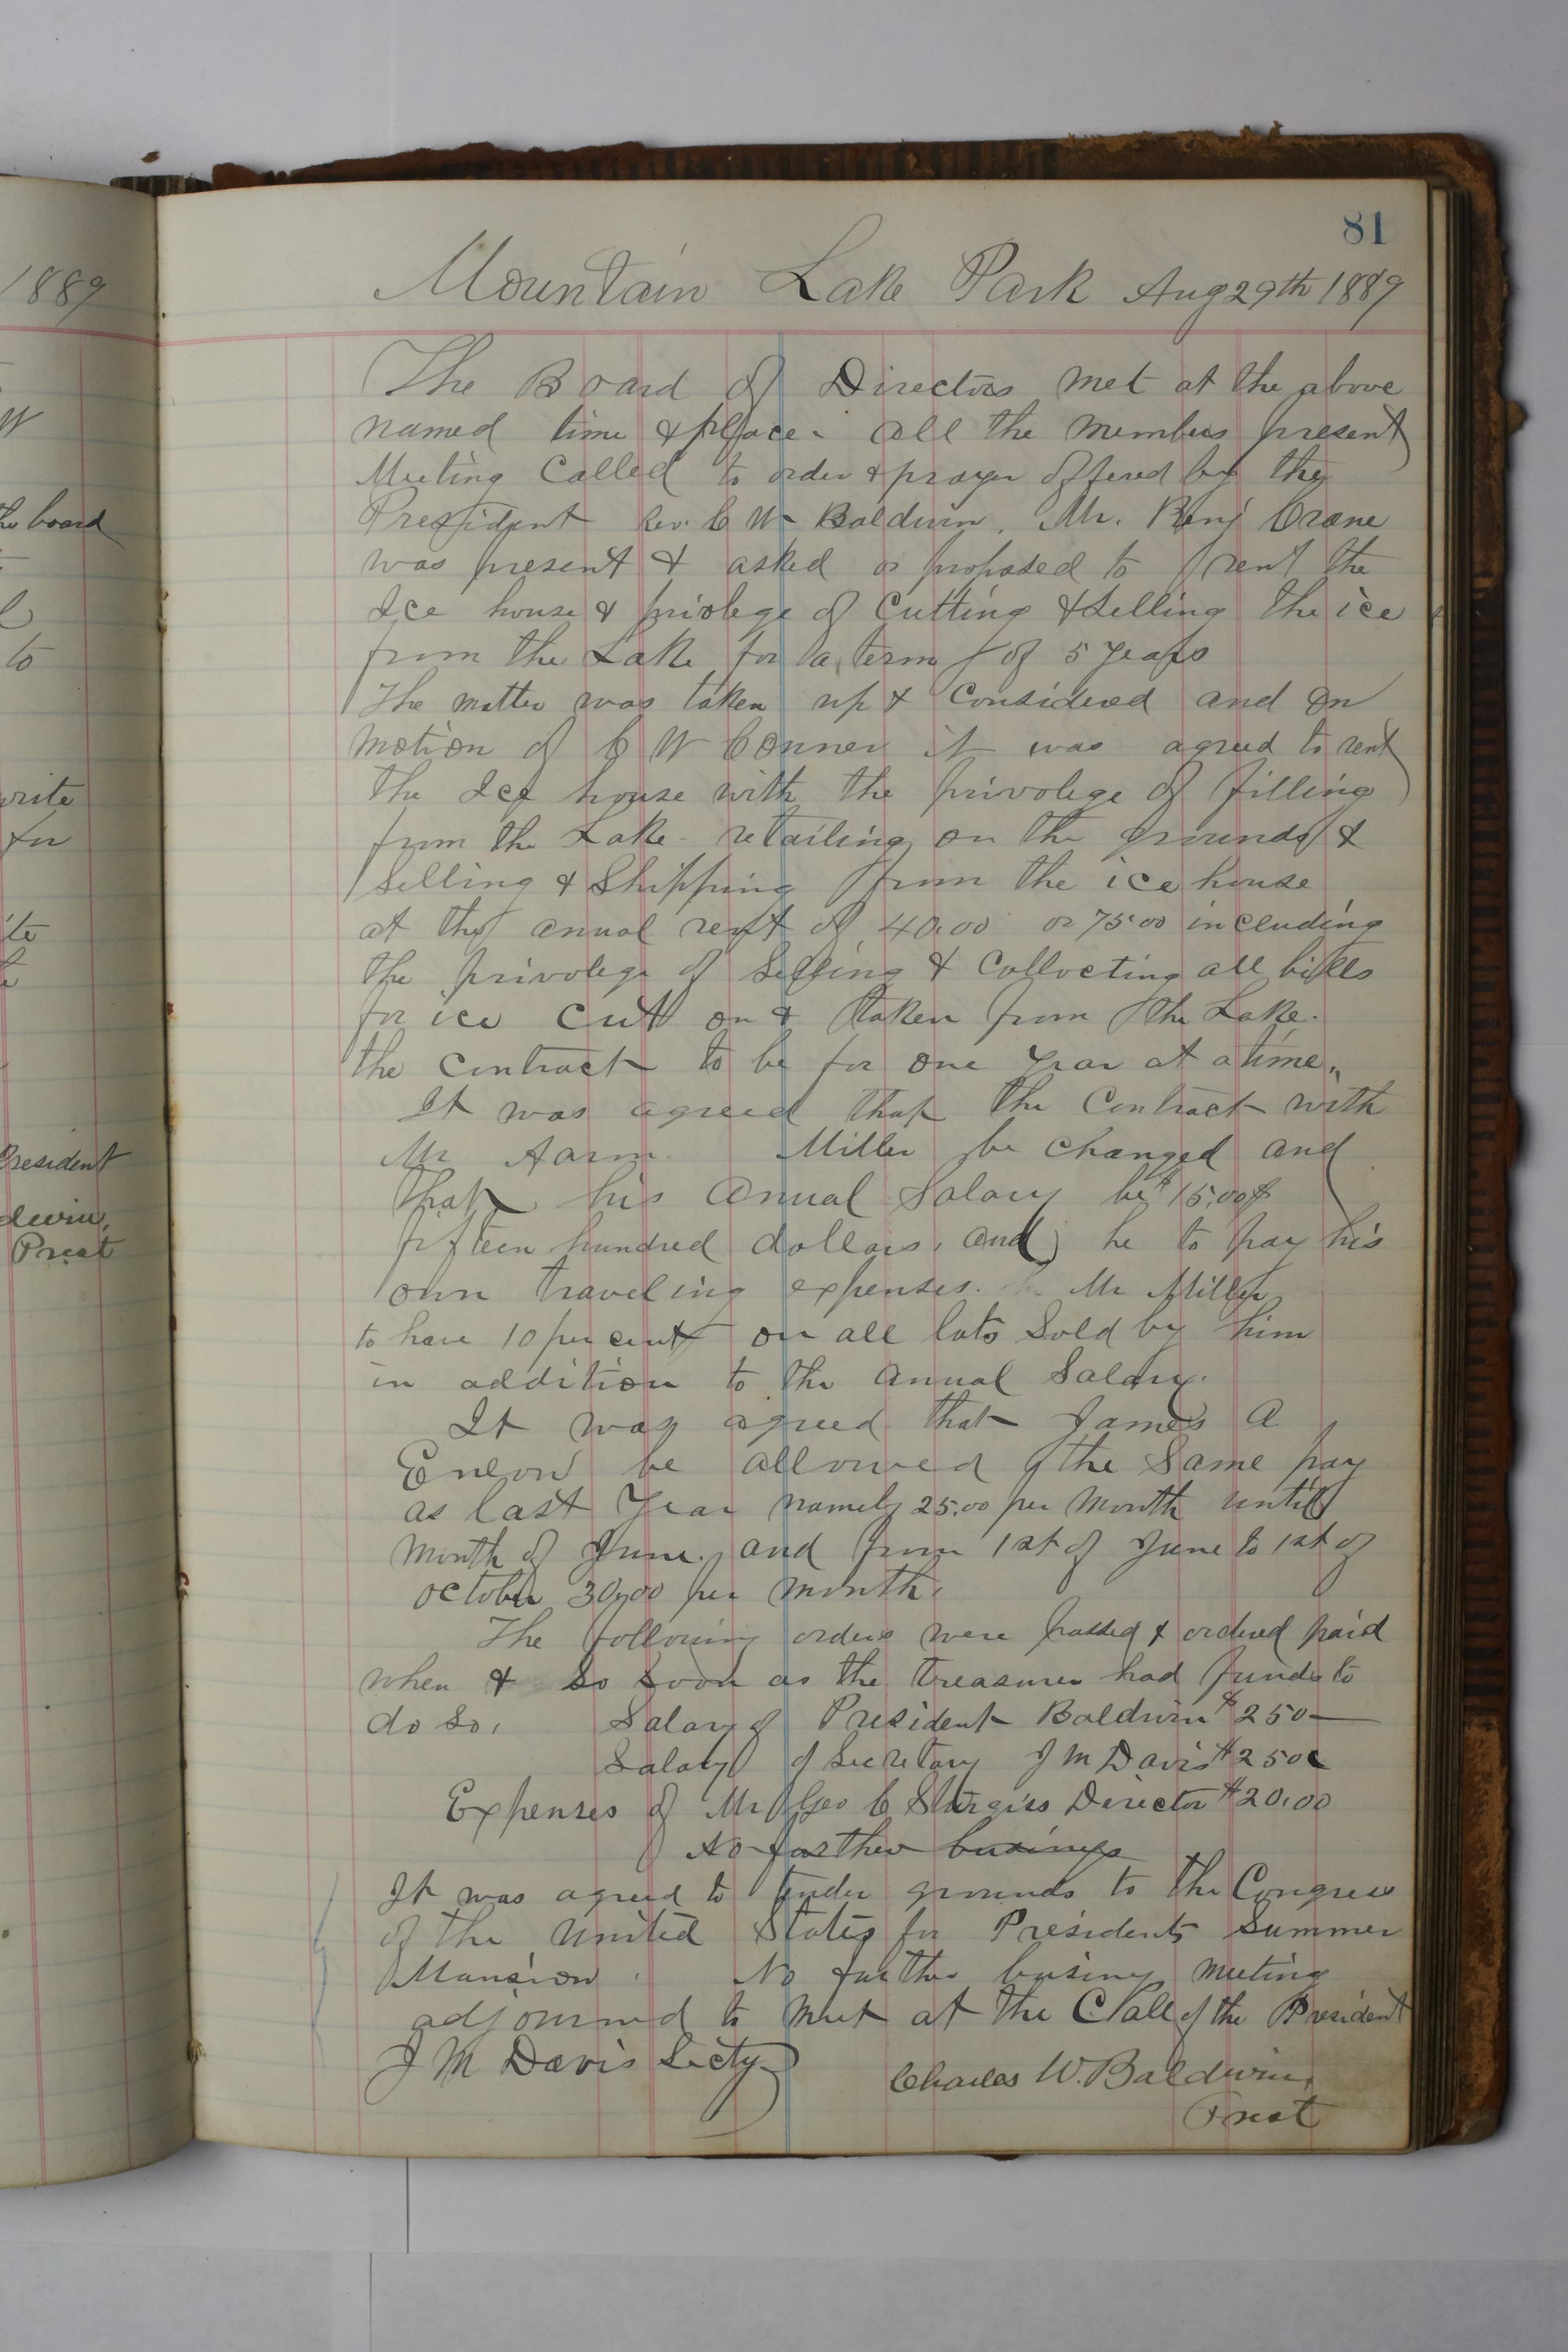 1889
W
the board
l
to
write
for
ite
President
dwin,
Prest
81
Mountain Lake Park Aug 29th 1889
The Board of Directors met at the above
named time & place. all the members present
Meeting Called to order & prayer offered by the
President Rev. C W Baldwin. Mr. Benj Crane
was present & asked or proposed to rent the
Ice house & privolege of Cutting & Selling the ice
from the Lake for a term of 5 Years
The matter was taken up & Considered and on
motion of C W Conner it was agreed to rent
the Ice house with the privolege of filling
from the Lake - retailing on the grounds &
Selling & Shipping from the ice house
at the anual rent of 40.00 or 75.00 including
the privolege of Selling & Collecting all bills
for ice Cut on & taken from the Lake.
the Contract to be for one Year at a time.
It was agreed that the Contract with
Mr Aarm. Miller be changed and
that his Annual Salary be $15,00$
fifteen hundred dollars, and he to pay his
own traveling expenses. Mr Miller
to have 10 per cent on all lots Sold by him
in addition to the Annual Salary.
It was agreed that James A
Enlow be allowed the Same pay
as last Year namely 25.00 per Month until
Month of June. and from 1st of June to 1st of
October 30,00 per month.
The following orders were passed & ordered paid
when & So Soon as the treasurer had funds to
do So, Salary of President Baldwin $250-
Salary of Secretary J M Davis $250
Expenses of Mr Geo C Sturgiss Director $20.00
No farther business
It was agreed to tender grounds to the Congress
of the United States for Presidents Summer
Mansion. No further business meeting
adjourned to meet at the Call of the President
J M Davis Secty
Charles W. Baldwin,
Prest